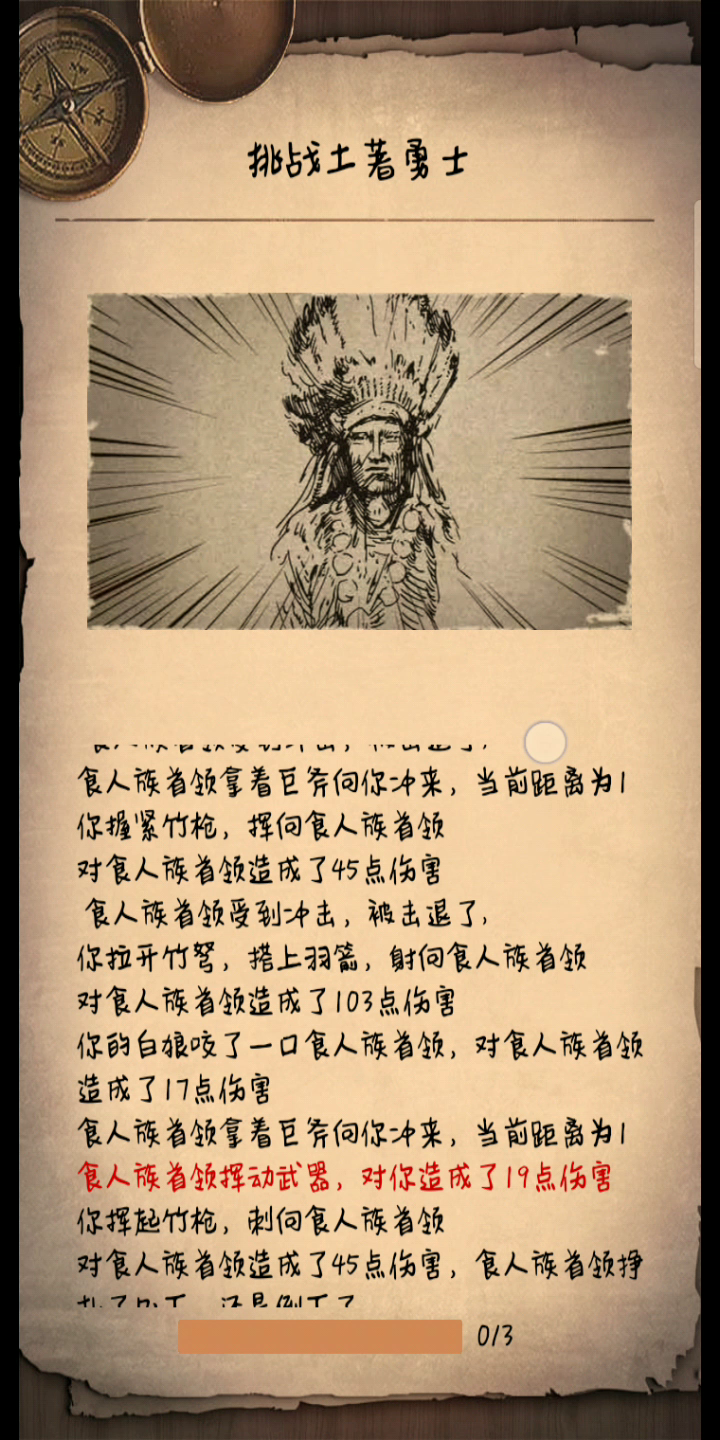 挑战土著勇士
食人族首领受到冲击，被击退了，
食人族首领拿着巨斧向你冲来，当前距离为1
你握紧竹枪，挥向食人族首领
对食人族首领造成了45点伤害
食人族首领受到冲击，被击退了，
你拉开竹弩，搭上羽箭，射向食人族首领
对食人族首领造成了103点伤害
你的白狼咬了一口食人族首领，对食人族首领
造成了17点伤害
食人族首领拿着巨斧向你冲来，当前距离为1
食人族首领挥动武器，对你造成了19点伤害
你挥起竹枪，刺向食人族首领
对食人族首领造成了45点伤害，食人族首领挣
扎了几下，还是倒下了
0/3